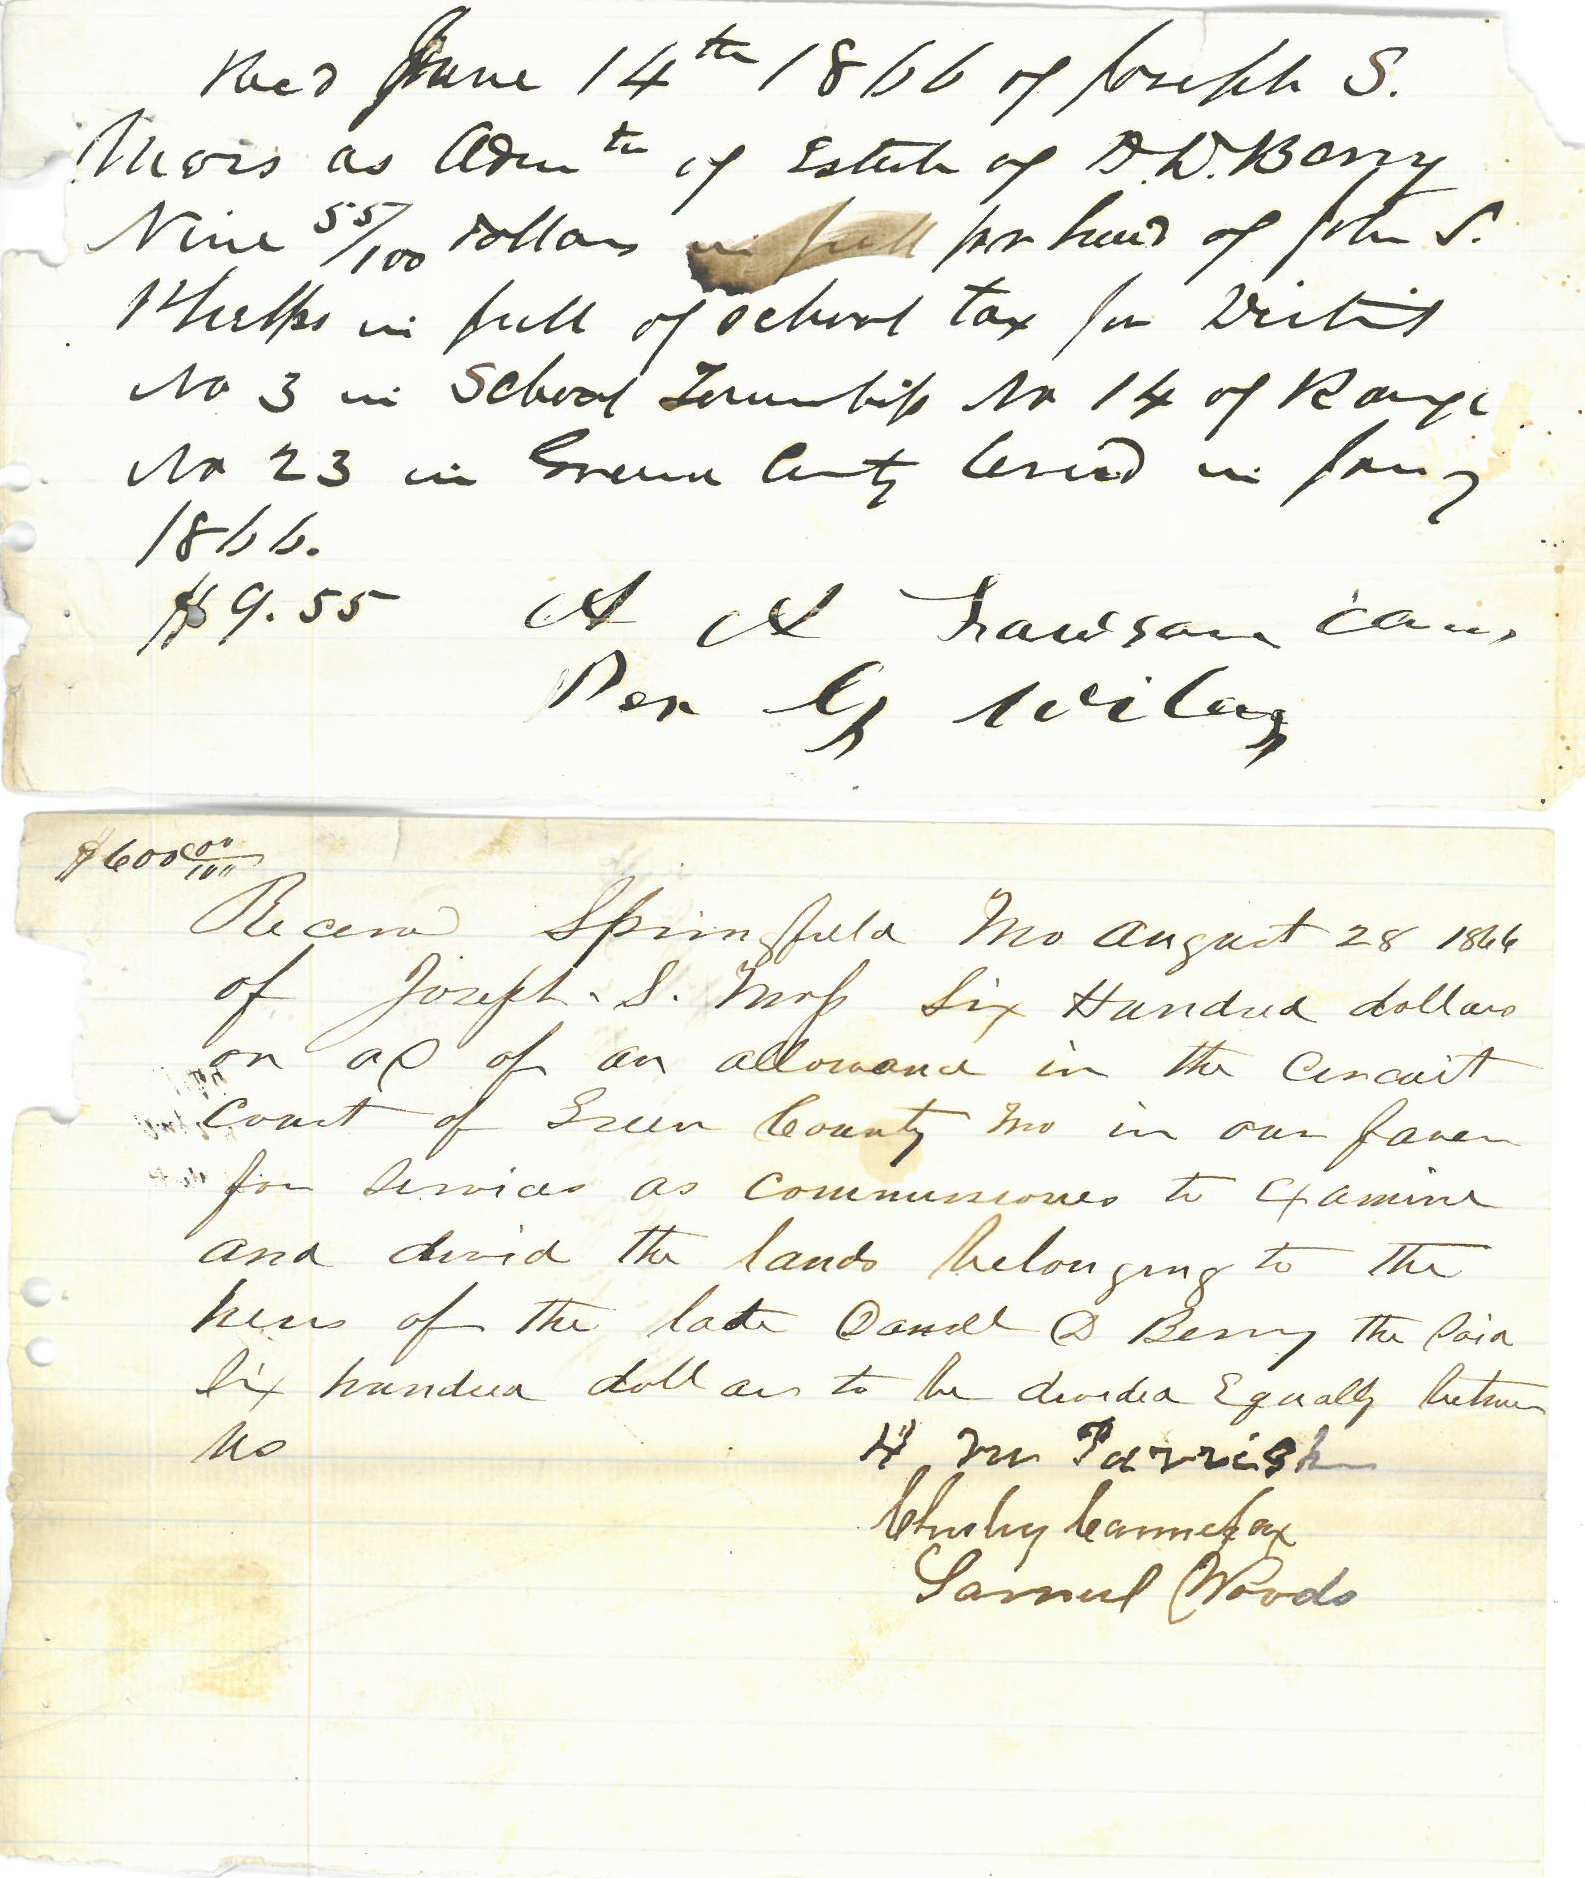 Rec'd June 14th 1866 of Joseph S.
Moss as Adm of Estate of D. D. Berry
Nine 55/100 Dollars in full per hand of John S.
Phelps in full of school tax for District
No 3 in School Township No 14 of Range
No 23 in Greene County levied in Jany
1866.
$9.55 A A Lawson
Per
$600 00/100
Received Springfield Mo August 28 1866
of Joseph S. Moss Six Hundred dollars
on ac of an allowance in the Circuit
Court of Green County Mo in our faver
for services as commissiones to Examine
and divid the lands belonging to the
heirs of the late Daniel D Berry the said
Six hundred dollars to be divided Equally between
us H M Parrish
Chesley Cannefax
Samuel Woods